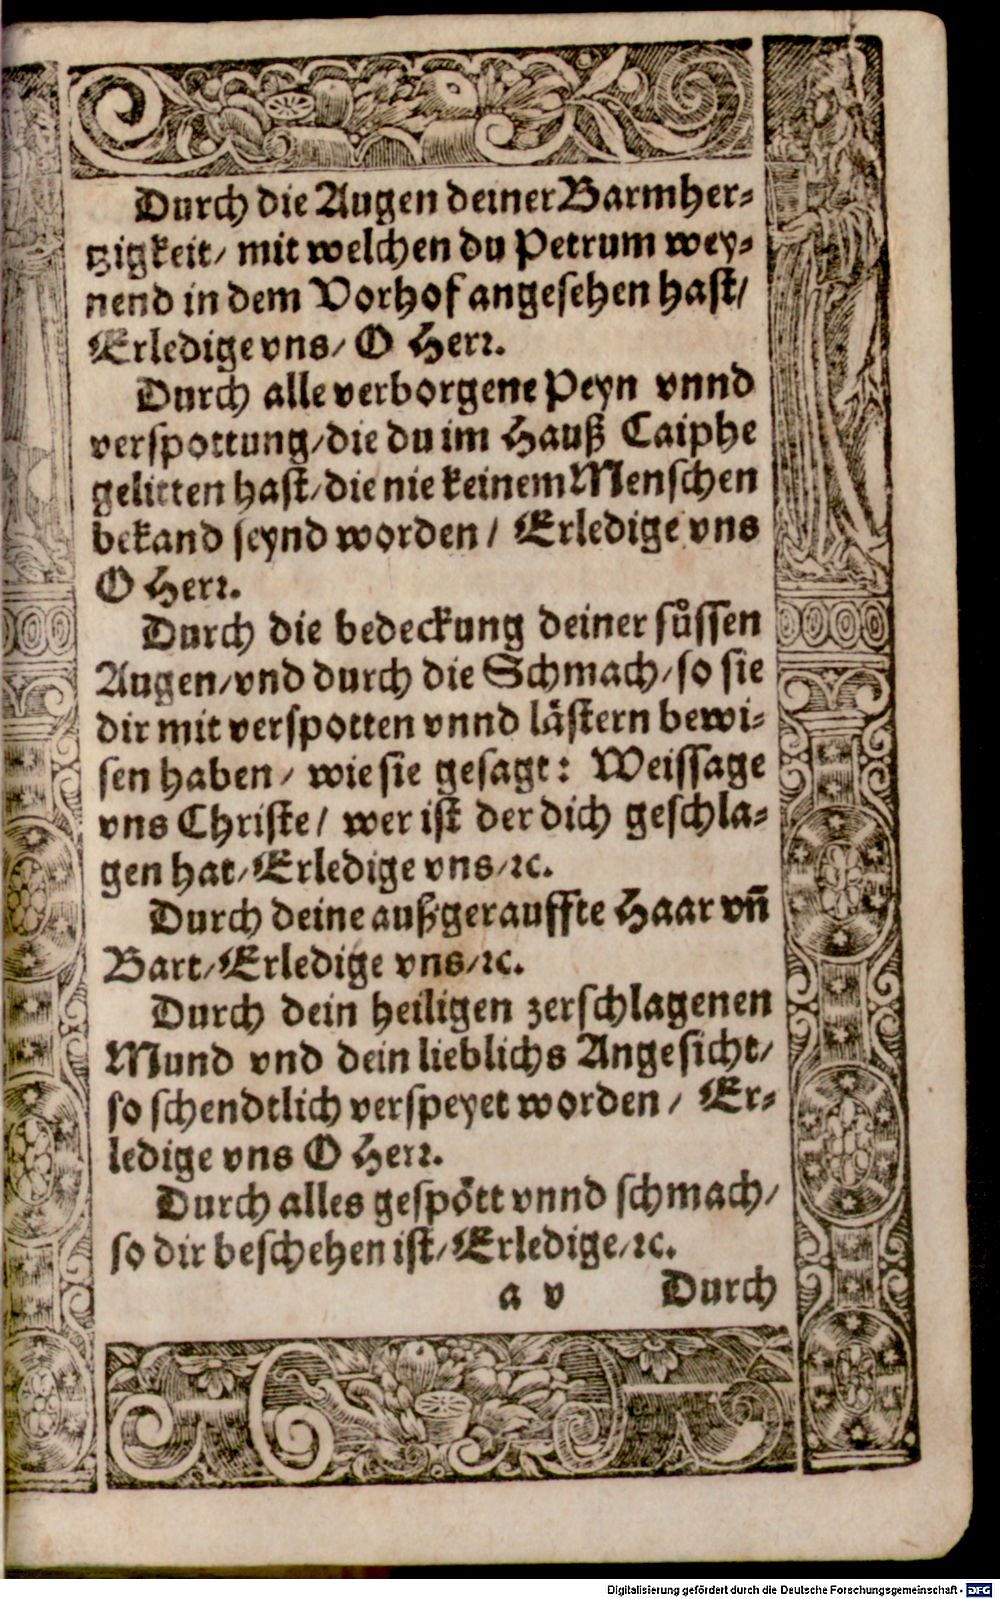 Durch die Augen deiner Barmher⸗
tzigkeit/ mit welchen du Petrum wey⸗
nend in dem Vorhof angesehen hast/
Erledige vns/ O Herꝛ.
Durch alle verborgene Peyn vnnd
verspottung/die du im Hauß Caiphe
gelitten hast/die nie keinem Menschen
bekand seynd worden/ Erledige vns
O Herꝛ.
Durch die bedeckung deiner suͤssen
Augen/vnd durch die Schmach/so sie
dir mit verspotten vnnd laͤstern bewi⸗
sen haben/ wie sie gesagt: Weissage
vns Christe/ wer ist der dich geschla⸗
gen hat/Erledige vns/ꝛc.
Durch deine außgerauffte Haar vñ
Bart/Erledige vns/ꝛc.
Durch dein heiligen zerschlagenen
Mund vnd dein lieblichs Angesicht/
so schendtlich verspeyet worden/ Er⸗
ledige vns O Herꝛ.
Durch alles gespoͤtt vnnd schmach/
so dir beschehen ist/Erledige/ꝛc.
a v Durch
Digitalisierung gefördert durch die Deutsche Forschungsgemeinschaft - DFG